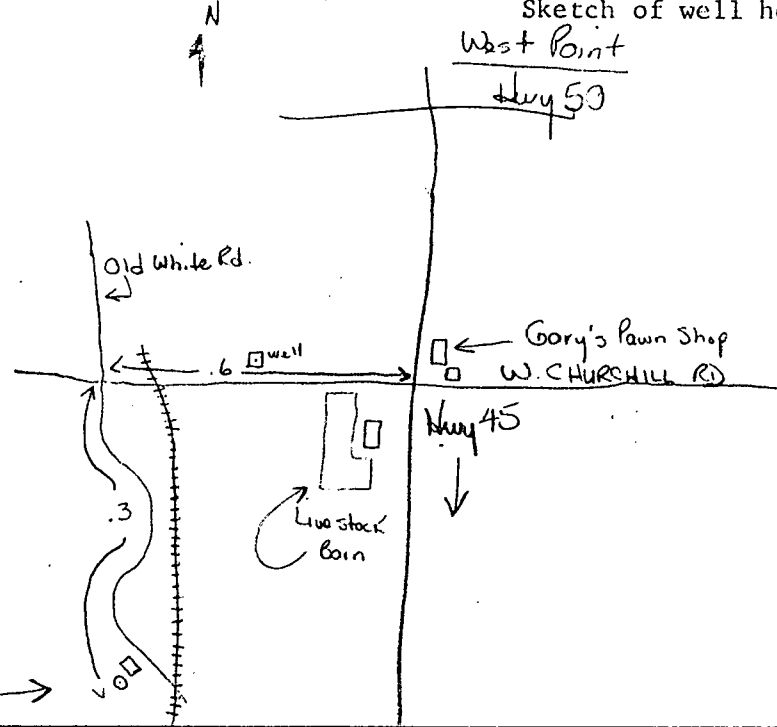 N
Sketch of well h
West Point
Hwy 50
Old White Rd.
.6
well
Gory's Pawn Shop
W. CHURCHILL RD
Hwy 45
.3
Livestock
Barn